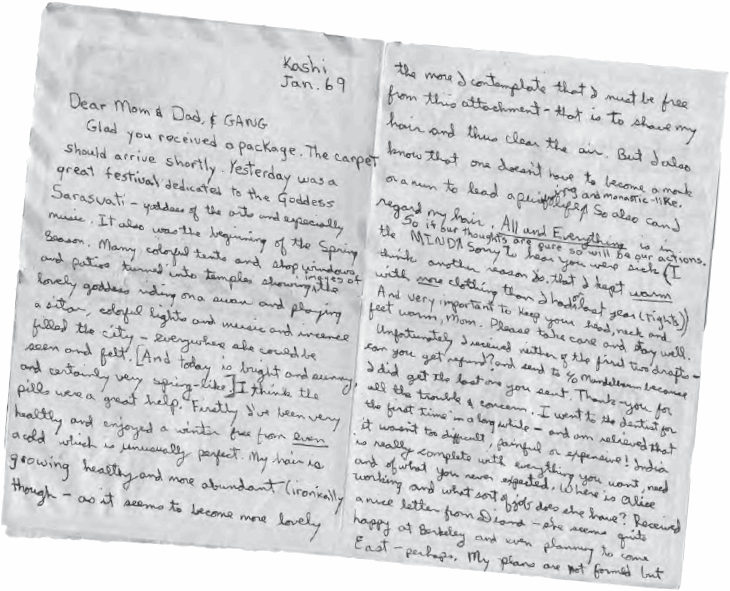 Kashi
Jan. 69
Dear Mom & Dad, & GANG
Glad you received a package. The carpet
should arrive shortly. Yesterday was a
great festival dedicated to the Goddess
Sarasvati - goddess of the arts and especially
music. It also was the beginning of the Spring
Season. Many colorful tents and shop windows
and patios turned into temples showing images of the
lovely goddess riding on a swan and playing
a sitar, colorful lights and music and incense
filled the city - everywhere she could be
seen and felt. [And today is bright and sunny,
and certainly very spring-like.] I think the
pills were a great help. Firstly I've been very
healthy and enjoyed a winter free from even
a cold which is unusually perfect. My hair is
growing healthy and more abundant (ironically
though - as it seems to become more lovely
the more I contemplate that I must be free
from this attachment - that is to shave my
hair and thus clear the air. But I also
know that one doesn't have to become a monk
or a nun to lead a pure life and monastic-like.
So also can I
regard my hair. All and Everything is in
So if our thoughts are pure so will be our actions.
the MIND! Sorry to hear you were sick (I
think another reason is that I kept warm
with more clothing than I had last year (tights))
And very important to keep your head, neck and
feet warm, Mom. Please take care and stay well.
Unfortunately I received neither of the first two drafts -
can you get refund? and send to c/o Mandelbaum because
I did get the last one you sent. Thank-you for
all the trouble & concern. I went to the dentist for
the first time in a long while - and am relieved that
it wasn't too difficult, painful or expensive! India
is really complete with everything you want, need
and of what you never expected. Where is Alice
working and what sort of job does she have? Received
a nice letter from - she seems quite
happy at Berkeley and even planning to come
East - perhaps. My plans are not formed but